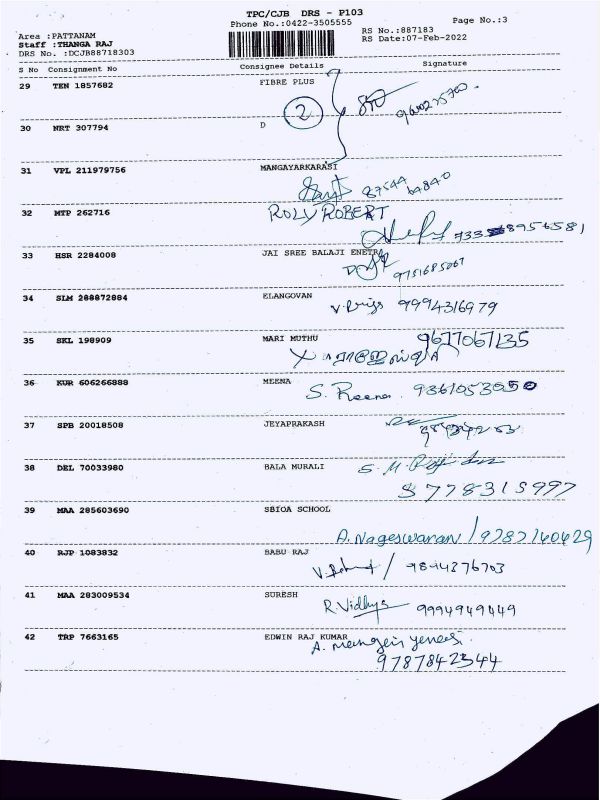 TPC/CJB DRS - P103
Phone No.:0422-3505555
Page No.:3
Area :PATTANAM
Staff :THANGA RAJ
DRS No. :DCJB88718303
RS No.:887183
RS Date:07-Feb-2022
S No Consignment No Consignee Details Signature
29 TEN 1857682 FIBRE PLUS
2
30 NRT 307794 D
31 VPL 211979756 MANGAYARKARASI
87544 64840
32 MTP 262716 ROLY ROBERT
33 HSR 2284008 JAI SREE BALAJI ENETR
9751685067
34 SLM 288872884 ELANGOVAN
9994316979
35 SKL 198909 MARI MUTHU
9677067135
36 KUR 606266888 MEENA
S. Reena. 9361053050
37 SPB 20018508 JEYAPRAKASH
38 DEL 70033980 BALA MURALI
8778315997
39 MAA 285603690 SBIOA SCHOOL
A. Nageswaran / 9787140429
40 RJP 1083832 BABU RAJ
9844276703
41 MAA 283009534 SURESH
R. Vidhya 9994949449
42 TRP 7663165 EDWIN RAJ KUMAR
9787842344